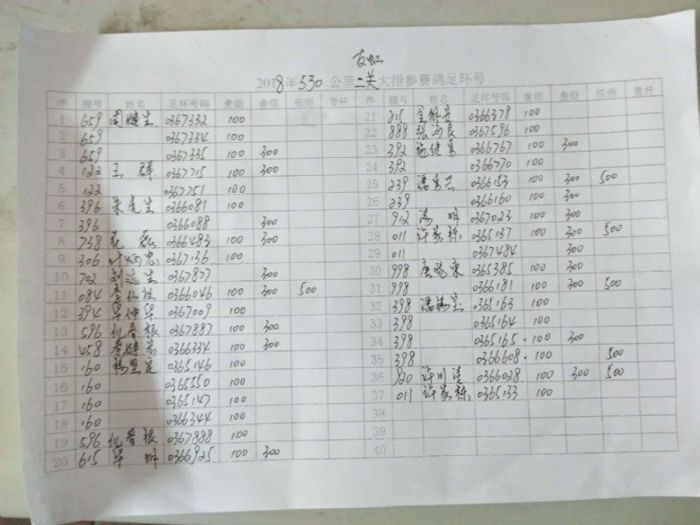 友虹
2018年530公里二关大指参赛鸽足环号
序 棚号 姓名 足环号码 壹佰 叁佰 伍佰 壹仟 序 棚号 姓名 足环号码 壹佰 叁佰 伍佰 壹仟
1 659 周 生 0367332 100 21 215 0366378 100
2 659 0367334 100 22 889 张 良 0367596 100
3 659 0367335 100 300 23 392 0366767 100 300
4 122 王 群 0367715 100 300 24 392 0366770 100
5 122 0367751 100 25 239 0366153 100 300 500
6 396 朱 生 0366081 100 26 239 0366160 100 300
7 396 0366088 300 27 912 汤 明 0367023 100 300
8 738 0366483 100 300 28 011 许家栋 0365137 100 300 500
9 306 叶 忠 0367136 100 29 011 0367484 300
10 702 刘远生 0367877 300 30 998 唐 0365385 100 300
11 084 0366046 100 300 500 31 998 0366181 100 300 500
12 394 0367009 100 32 398 潘 0365163 100
13 596 仇春根 0367887 100 300 33 398 0365164 100
14 458 0366334 100 300 34 398 0365165 100 300
15 160 杨 0365146 100 35 398 0366608 100 500
16 160 0365550 100 36 920 许川 0366028 100 300 500
17 160 0365147 100 37 011 许家栋 0365133 100
18 160 0366344 100 38
19 596 仇春根 0367888 100 39
20 615 明 0366925 100 300 40